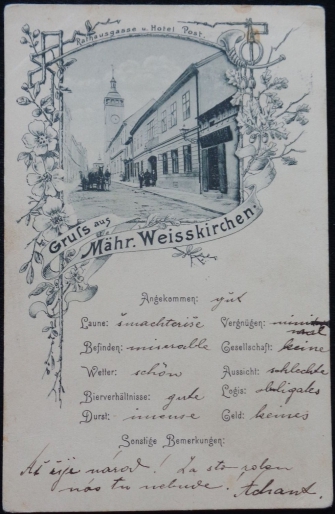 Rathausgasse u. Hotel Post.
Gruss aus
Mähr. Weisskirchen
Angekommen: gut
Laune: šmachteriše Vergnügen:
Befinden: miserable Gesellschaft: keine
Wetter: schön Aussicht: schlechte
Bierverhältnisse: gute Logis: obligates
Durst: imense Geld: keines
Sonstige Bemerkungen:
Ať žije národ! Za sto roků
nás tu nebude.